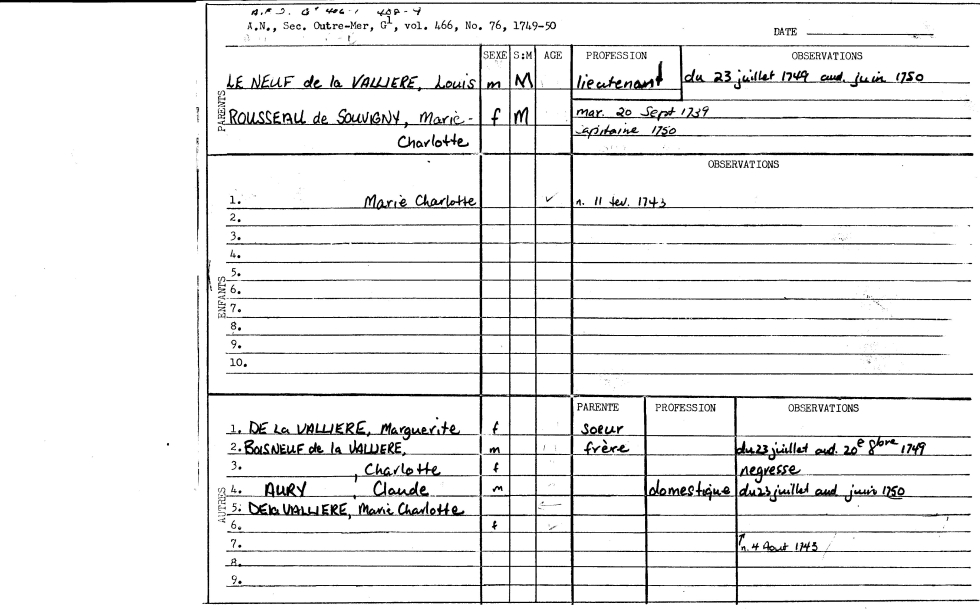 A.N., Sec. Outre-Mer, G1, vol. 466, No. 76, 1749-50
DATE
SEXE S:M AGE PROFESSION OBSERVATIONS
PARENTS
LE NEUF de la VALLIERE, Louis m M lieutenant du 23 juillet 1749 aud. juin 1750
ROUSSEAU de SOUVIGNY, Marie- f M mar. 20 Sept 1739
Charlotte capitaine 1750
OBSERVATIONS
ENFANTS
1. Marie Charlotte ✓ n. 11 fev. 1743
2.
3.
4.
5.
6.
7.
8.
9.
10.
PARENTE PROFESSION OBSERVATIONS
AUTRES
1. DE La VALLIERE, Marguerite f Soeur
2. BOISNEUF de la VALLIERE, m frère du 23 juillet aud. 20e 8bre 1749
3. , Charlotte f negresse
4. AURY , Claude m domestique du 23 juillet aud juin 1750
5. DE la VALLIERE, Marie Charlotte
6. f ✓
7. n. 4 Aout 1743
8.
9.